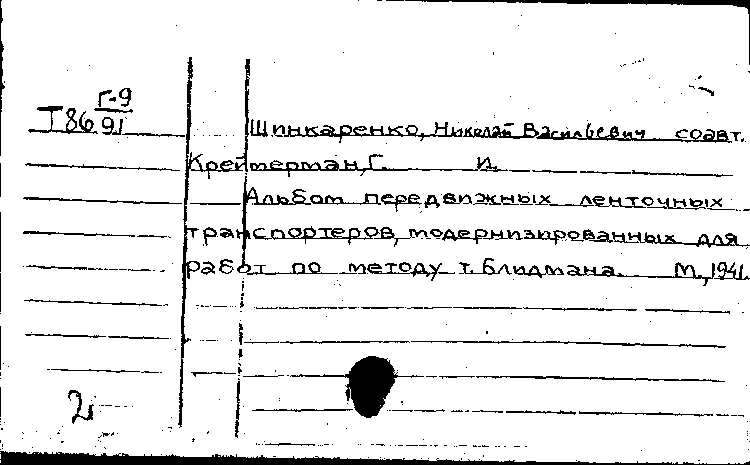 Г-9
Т86 91
Шинкаренко, Николай Васильевич соавт.
Креймерман, Г. И.
Альбом передвижных ленточных
транспортеров, модернизированных для
работ по методу т. Блидмана. М., 1941.
2